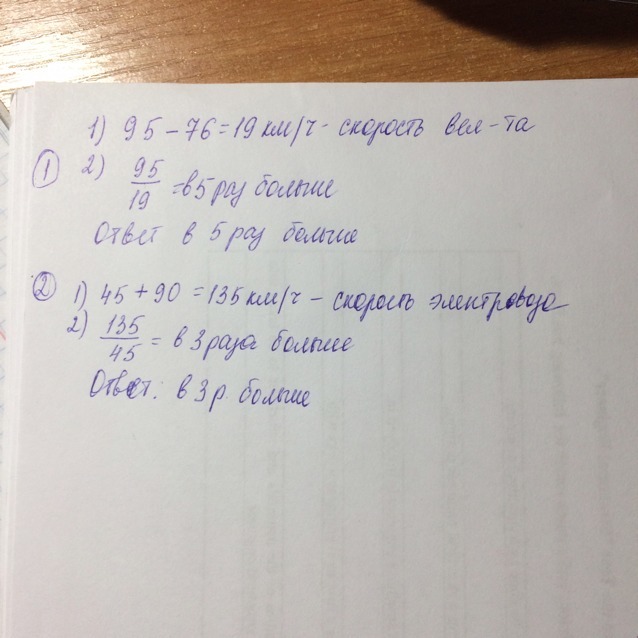 1) 95 - 76 = 19 км/ч - скорость вел-та
① 2) 95/19 = в 5 раз больше
Ответ в 5 раз больше
② 1) 45 + 90 = 135 км/ч - скорость электровоза
2) 135/45 = в 3 раза больше
Ответ: в 3 р. больше